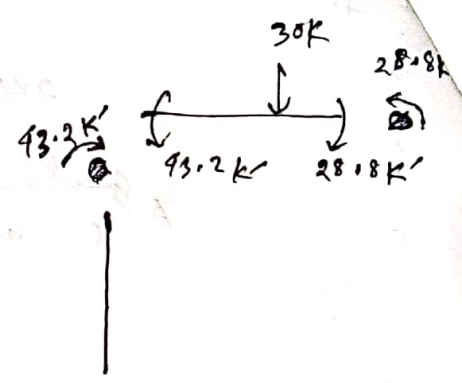 30K
28.8K
43.2K'
43.2K'
28.8K'